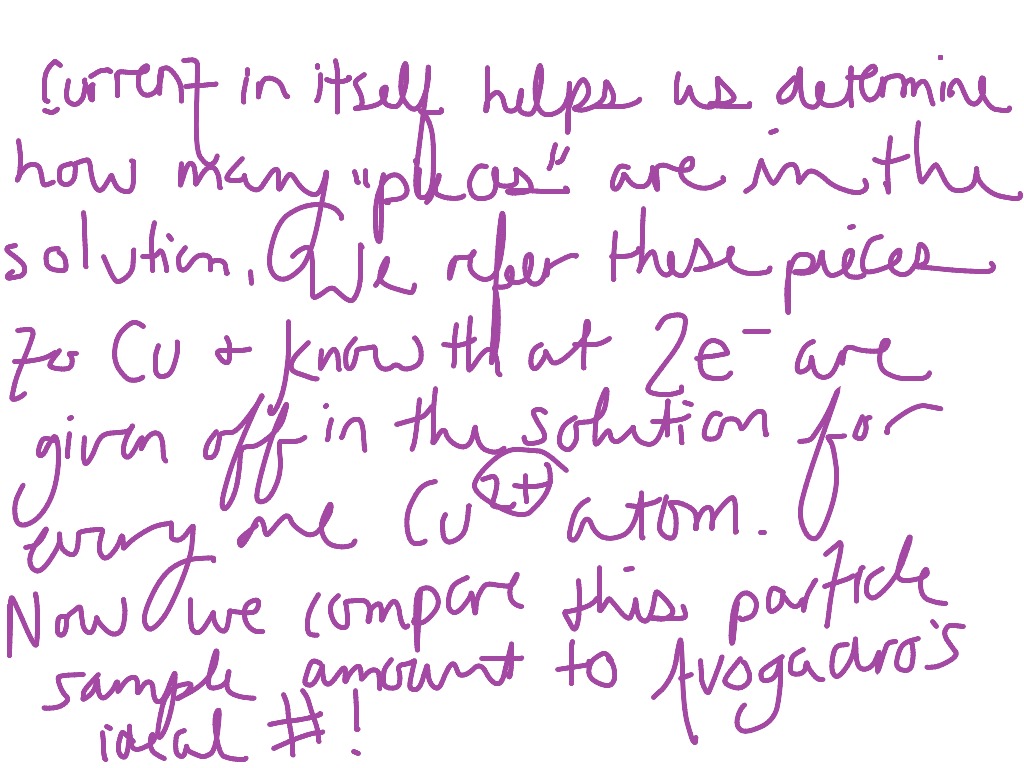 Current in itself helps us determine
how many "pieces" are in the
solution. We refer these pieces
to Cu + know that 2e⁻ are
given off in the solution for
every one Cu²⁺ atom.
Now we compare this particle
sample amount to Avogadro's
ideal #!